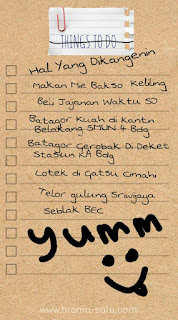 THINGS TO DO
Hal Yang Dikangenin
Makan Mie Bakso Keliling
Beli Jajanan Waktu SD
Batagor Kuah di Kantin
Belakang SMUN 4 Bdg
Batagor Gerobak Di Deket
Stasiun KA Bdg
Lotek di Gatsu Cimahi
Telor gulung Sriwijaya
Seblak BEC
yumm
www.brama-sole.com